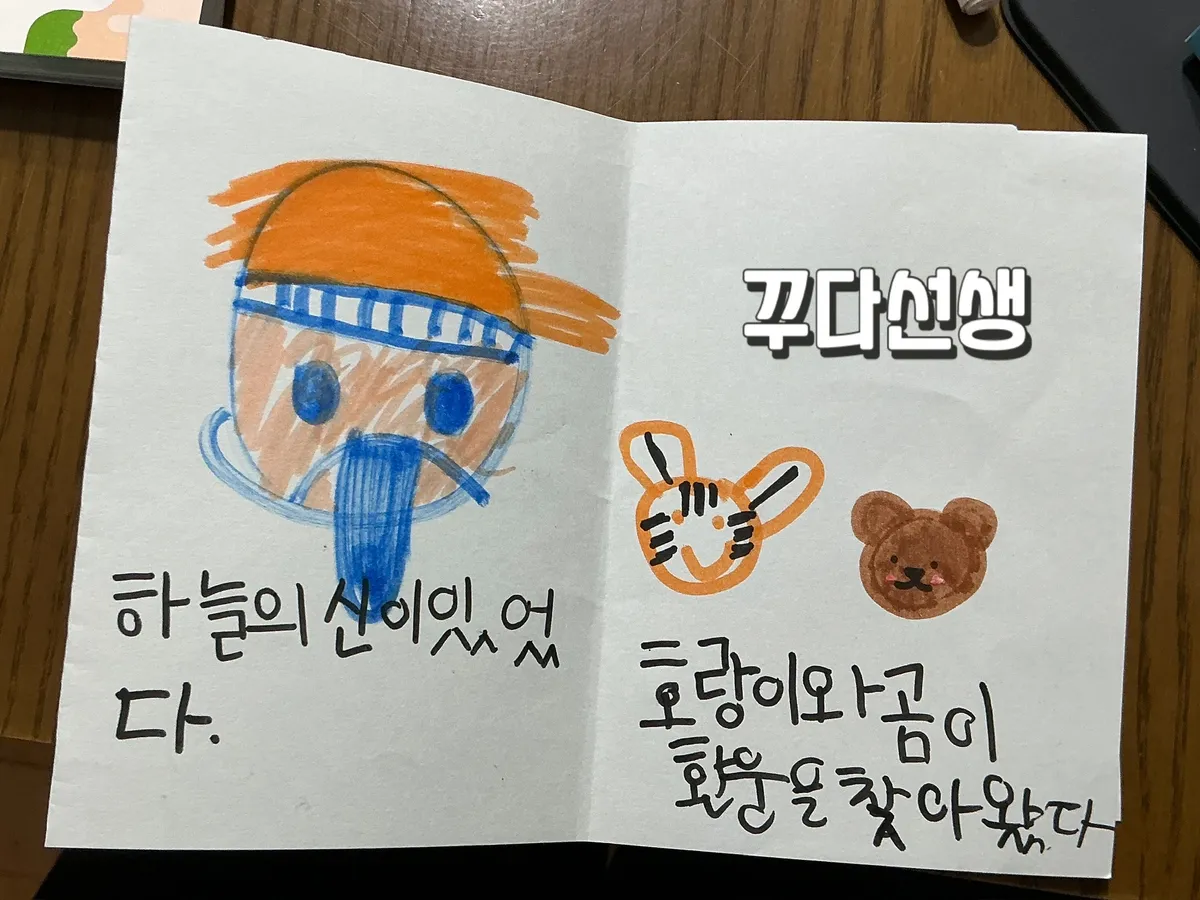 하늘의 신이 있었
다.
꾸다선생
호랑이와 곰이
환웅을 찾아왔다